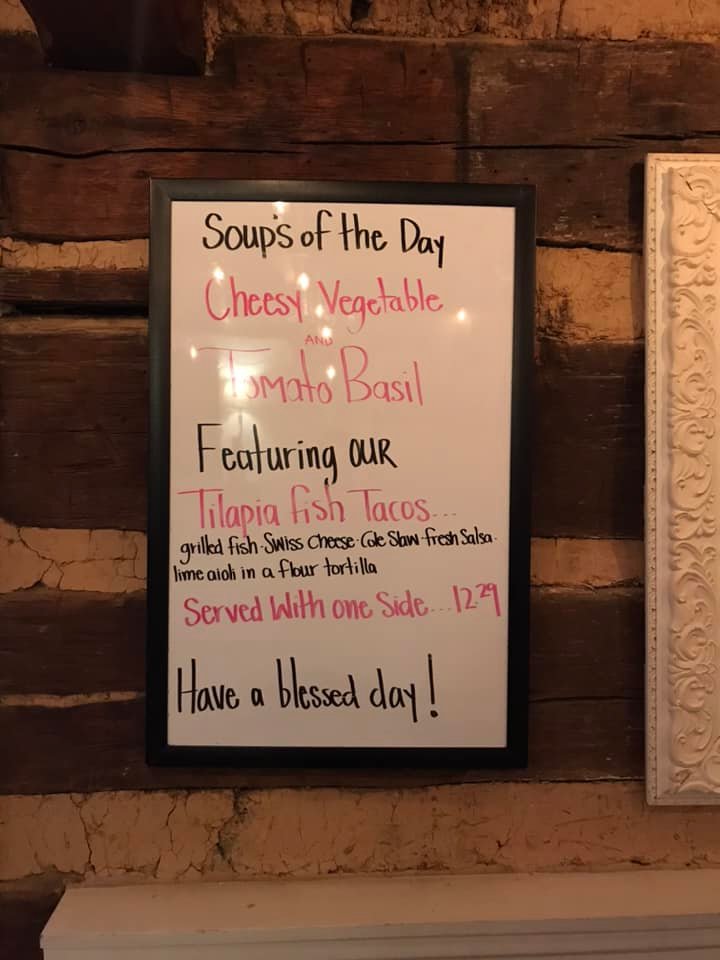 Soup's of the Day
Cheesy Vegetable
AND
Tomato Basil
Featuring OUR
Tilapia fish Tacos...
grilled fish-Swiss Cheese-Cole Slaw-fresh Salsa-
lime aioli in a flour tortilla
Served With one Side...12.29
Have a blessed day!